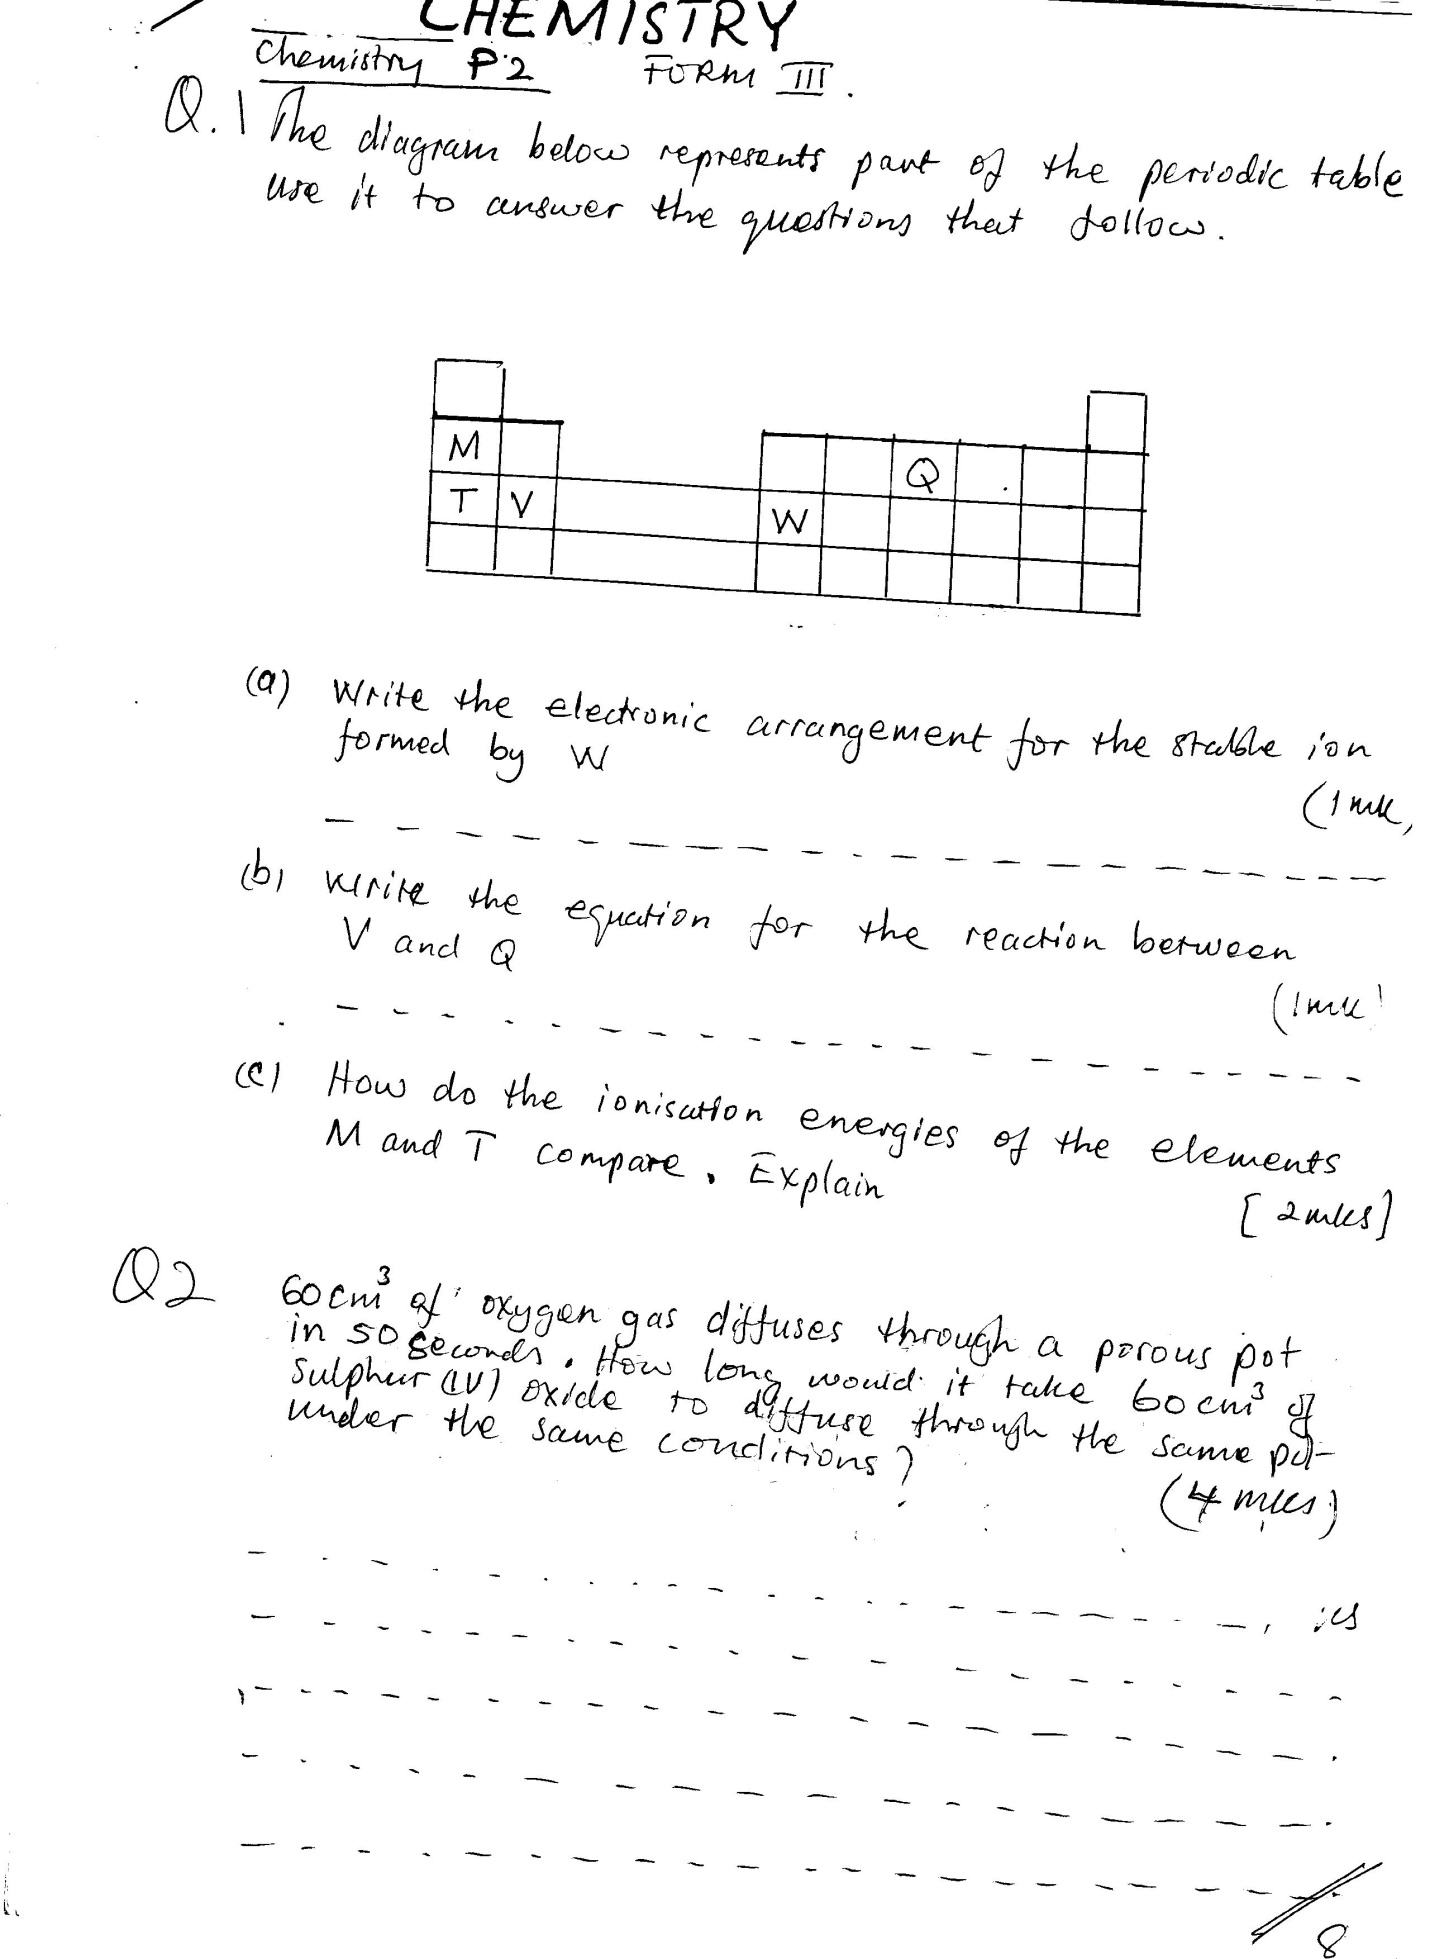 CHEMISTRY
Chemistry P.2 FORM III.
Q.1 The diagram below represents part of the periodic table
use it to answer the questions that follow.
M Q
T V W
(a) Write the electronic arrangement for the stable ion
formed by W
(1mk,
(b) Write the equation for the reaction between
V and Q
(1mk)
(c) How do the ionisation energies of the elements
M and T compare. Explain
[2mks]
Q2 60cm³ of oxygen gas diffuses through a porous pot
in 50 seconds. How long would it take 60cm³ of
Sulphur (IV) oxide to diffuse through the same pot
under the same conditions?
(4mks)
8